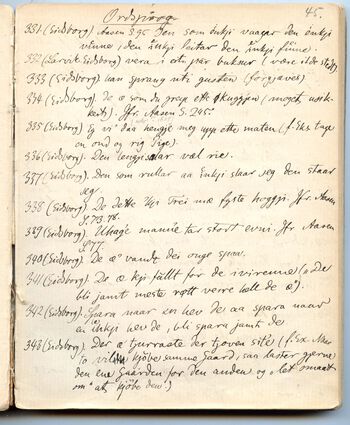 45.
Ordsprog
331 (Eidsborg). Aasen S. 95. Den som inkji vaagar den inkji
vinne, den inkji leitar den inkji finne.
332 (Larvik. Eidsborg) vera i ein par buksur (vere ilde stedt)
333 (Eidsborg) han sprang uti gusten (forgjæves)
334 (Eidsborg). De æ som du greip ette skuggjen (noget usik-
kert). Jfr. Aasen S. 245.
335 (Eidsborg) Eg vi daa hengje meg upp ette maten (f. Eks. tage
en ond og rig Pige).
336 (Eidsborg). Den lengji har væl rie.
337 (Eidsborg). Den som rullar aa inkji slaar seg den staar
seg.
338 (Eidsborg) De dette kji trei mæ fyste hoggji. Jfr. Aasen
S. 73. 78.
329 (Eidsborg). mange tar stort evni. Jfr Aasen
S 77.
340 (Eidsborg) De æ vandt dei onge spaa.
341 (Eidsborg) De æ kji fallt for de ivirenne (= De
bli jamt meste røtt verre hell de æ).
342 (Eidsborg) Spara naar en hev de aa spara naar
en inkji hev de, bli spara jamt de
343 (Eidsborg). Der æ tjuvraate der tjoven site (f. Ex. Naar
to vilde kjøbe samme Gaard, saa laster gjerne
den ene Gaarden for den anden og let omaat
om at kjøbe den.)